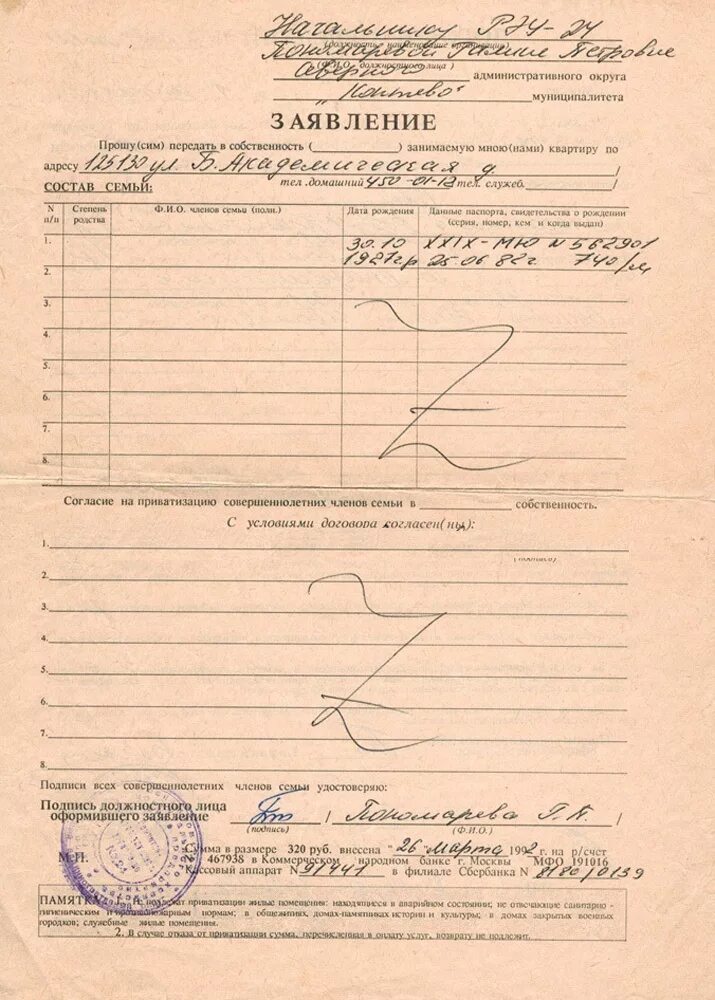 Начальнику РЭУ-24
(должность, наименование организации)
Пономаревой Галине Петровне
(Ф.И.О. должностного лица)
Северного административного округа
"Коптево" муниципалитета
ЗАЯВЛЕНИЕ
Прошу(сим) передать в собственность ( ) занимаемую мною(нами) квартиру по
адресу 125130 ул. Б. Академическая д. /
СОСТАВ СЕМЬИ: тел. домашний 450-01-13 тел. служеб. /
N п/п Степень родства Ф.И.О. членов семьи (полн.) Дата рождения Данные паспорта, свидетельства о рождении (серия, номер, кем и когда выдан)
1. 30.10 XXIX-МЮ N 562901
1927гр 25.06.82г. 740/м
2.
3.
4.
5.
6.
7.
8.
Согласие на приватизацию совершеннолетних членов семьи в собственность.
С условиями договора согласен(ны):
1.
(подпись)
2.
3.
4.
5.
6.
7.
8.
Подписи всех совершеннолетних членов семьи удостоверяю:
Подпись должностного лица
оформившего заявление / Пономарева Г.П. /
(подпись) (Ф.И.О.)
М.П. Сумма в размере 320 руб. внесена "26" марта 1992 г. на р/счет
467938 в Коммерческом народном банке г. Москвы МФО 191016
Кассовый аппарат N 91441 в филиале Сбербанка N 8180/0139
ПАМЯТКА: 1. Не подлежат приватизации жилые помещения: находящиеся в аварийном состоянии; не отвечающие санитарно-
гигиеническим и противопожарным нормам; в общежитиях, домах-памятниках истории и культуры; в домах закрытых военных
городков; служебные жилые помещения.
2. В случае отказа от приватизации сумма, перечисленная в оплату услуг, возврату не подлежит.